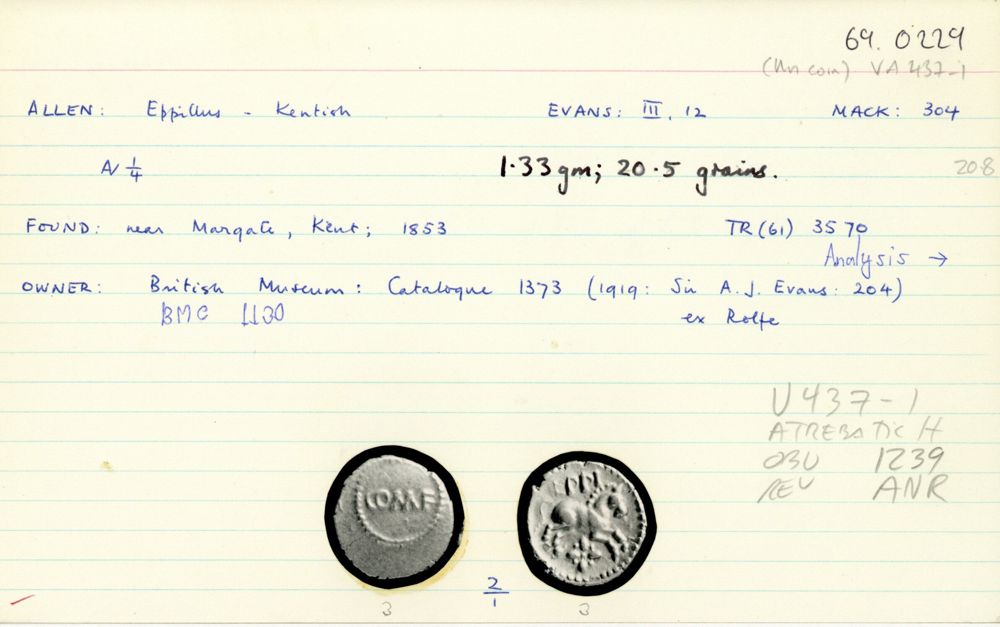 69. 0229
(Un coin) VA 437-1
ALLEN: Eppillus - Kentish EVANS: III, 12 MACK: 304
AV 1/4 1·33 gm; 20·5 grains. 20·8
FOUND: near Margate, Kent; 1853 TR (61) 35 70
Analysis →
OWNER: British Museum: Catalogue 1373 (1919: Sir A.J. Evans: 204)
BMC 1130 ex Rolfe
V 437-1
ATREBATIC H
OBV 1239
REV ANR
COMF EPPI
2/1
3 3